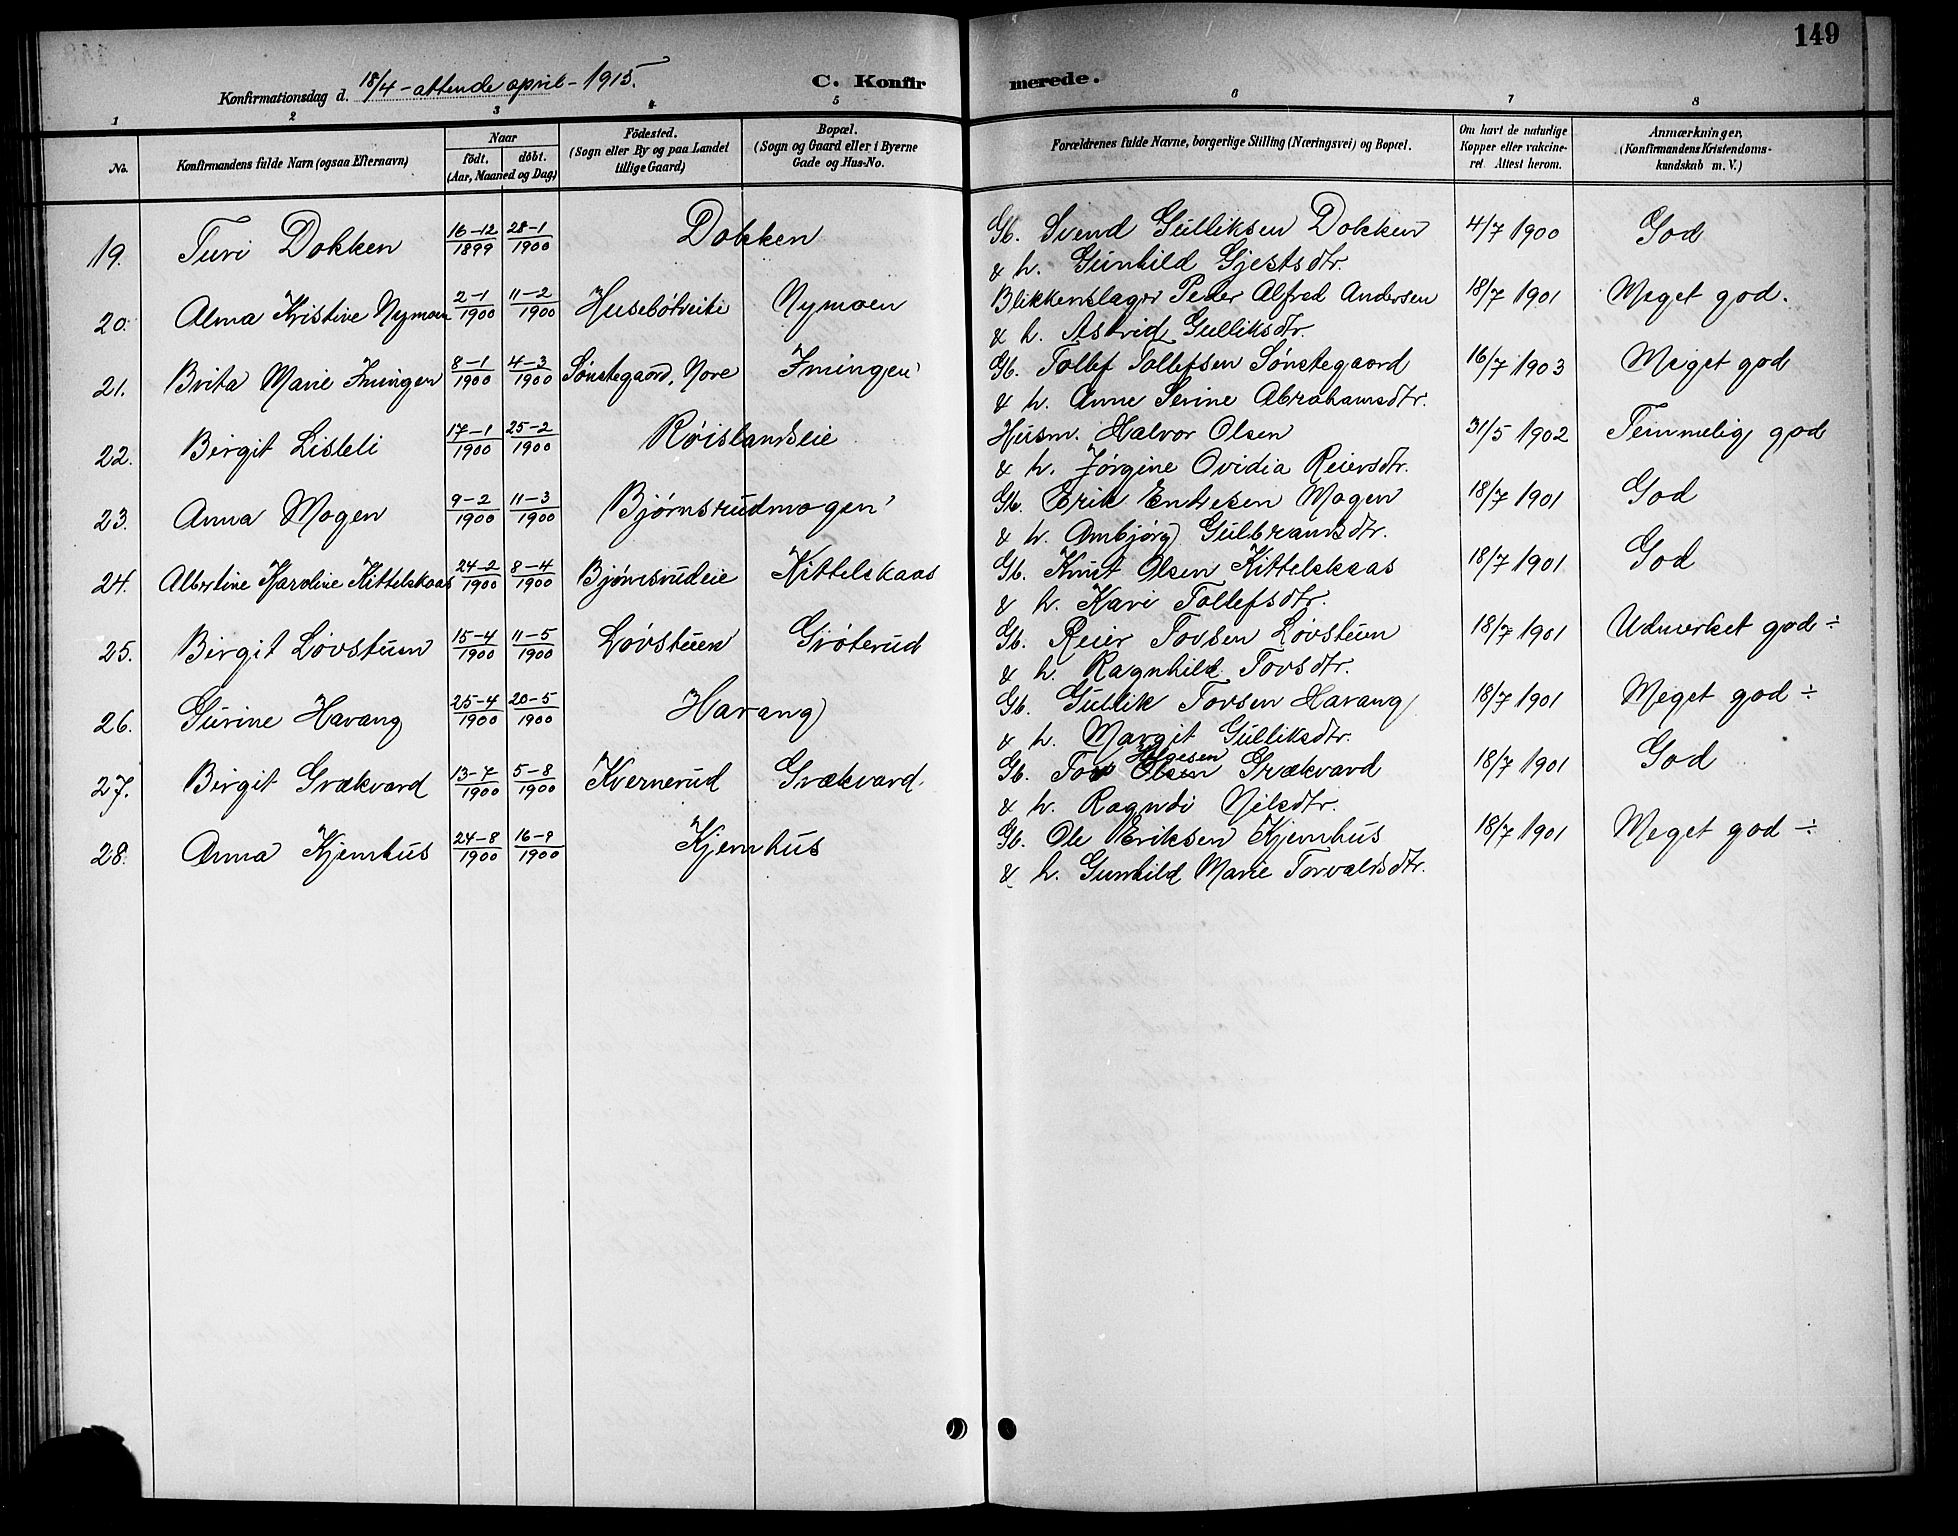 149
Konfirmationsdag d. 18/4 - attende april - 1915.
C. Konfirmerede.
1 2 3 4 5 6 7 8
No.
Konfirmandens fulde Navn (ogsaa Efternavn)
Naar
födt, döbt.
(Aar, Maaned og Dag)
Födested.
(Sogn eller By og paa Landet
tillige Gaard)
Bopæl.
(Sogn og Gaard eller i Byerne
Gade og Hus-No.
Forældrenes fulde Navne, borgerlige Stilling (Næringsvei) og Bopæl.
Om havt de naturlige
Kopper eller vakcine-
ret. Attest herom.
Anmærkninger,
(Konfirmandens Kristendoms-
kundskab m. V.)
19. Turi Dokken 16-12/1899 28-1/1900 Dokken Gb. Svend Gulliksen Dokken 4/7 1900 God
& h. Gunhild Gjestsdtr.
20. Alma Kristine Nymoen 2-1/1900 11-2/1900 Husebötveiti Nymoen Blikkenslager Peder Alfred Andersen 18/7 1901 Meget god.
& h. Astrid Gulliksdtr.
21. Brita Marie Imingen 8-1/1900 4-3/1900 Sönstegaard, Nore Imingen Gb. Tollef Tollefsen Sönstegaard 16/7 1903 Meget god
& h. Anne Serine Abrahamsdtr.
22. Birgit Lisleli 17-1/1900 25-2/1900 Røislandseie Husm. Halvor Olsen 31/5 1902 Temmelig god
& h. Jørgine Ovidia Reiersdtr.
23. Anna Mogen 9-2/1900 11-3/1900 Bjørnsrudmogen Gb. Erik Endresen Mogen 18/7 1901 God
& h. Ambjørg Gulbrandsdtr.
24. Albertine Karoline Kittelskaas 24-2/1900 8-4/1900 Bjørnsrudeie Kittelskaas Gb. Knut Olsen Kittelskaas 18/7 1901 God
& h. Kari Tollefsdtr.
25. Birgit Løvstuen 15-4/1900 11-5/1900 Løvstuen Grøterud Gb. Reier Tovsen Løvstuen 18/7 1901 Udmerket god ÷
& h. Ragnhild Tovsdtr.
26. Gurine Havang 25-4/1900 20-5/1900 Havang Gb. Gullik Tovsen Havang 18/7 1901 Meget god ÷
& h. Margit Gulliksdtr.
27. Birgit Grækvard 13-7/1900 5-8/1900 Kvernerud Grækvard. Gb. Tov Olsen Helgesen Grækvard 18/7 1901 God
& h. Ragndi Nilsdtr.
28. Anna Kjemhus 24-8/1900 16-9/1900 Kjemhus Gb. Ole Eriksen Kjemhus 18/7 1901 Meget god ÷
& h. Gunhild Marie Torvaldsdtr.